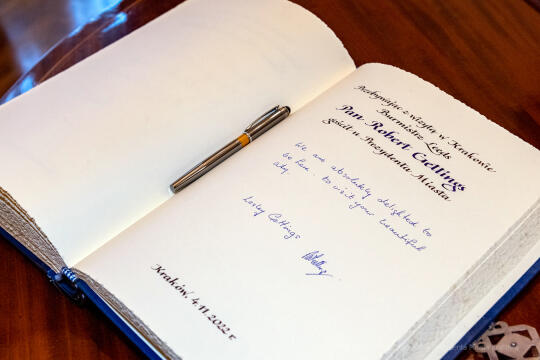 Przebywając z wizytą w Krakowie
Burmistrz Leeds
Pan Robert Gettings
gościł u Prezydenta Miasta
We are absolutely delighted to
be here to visit your beautiful
city.
Lesley Gettings
Kraków, 4.11.2022 r.